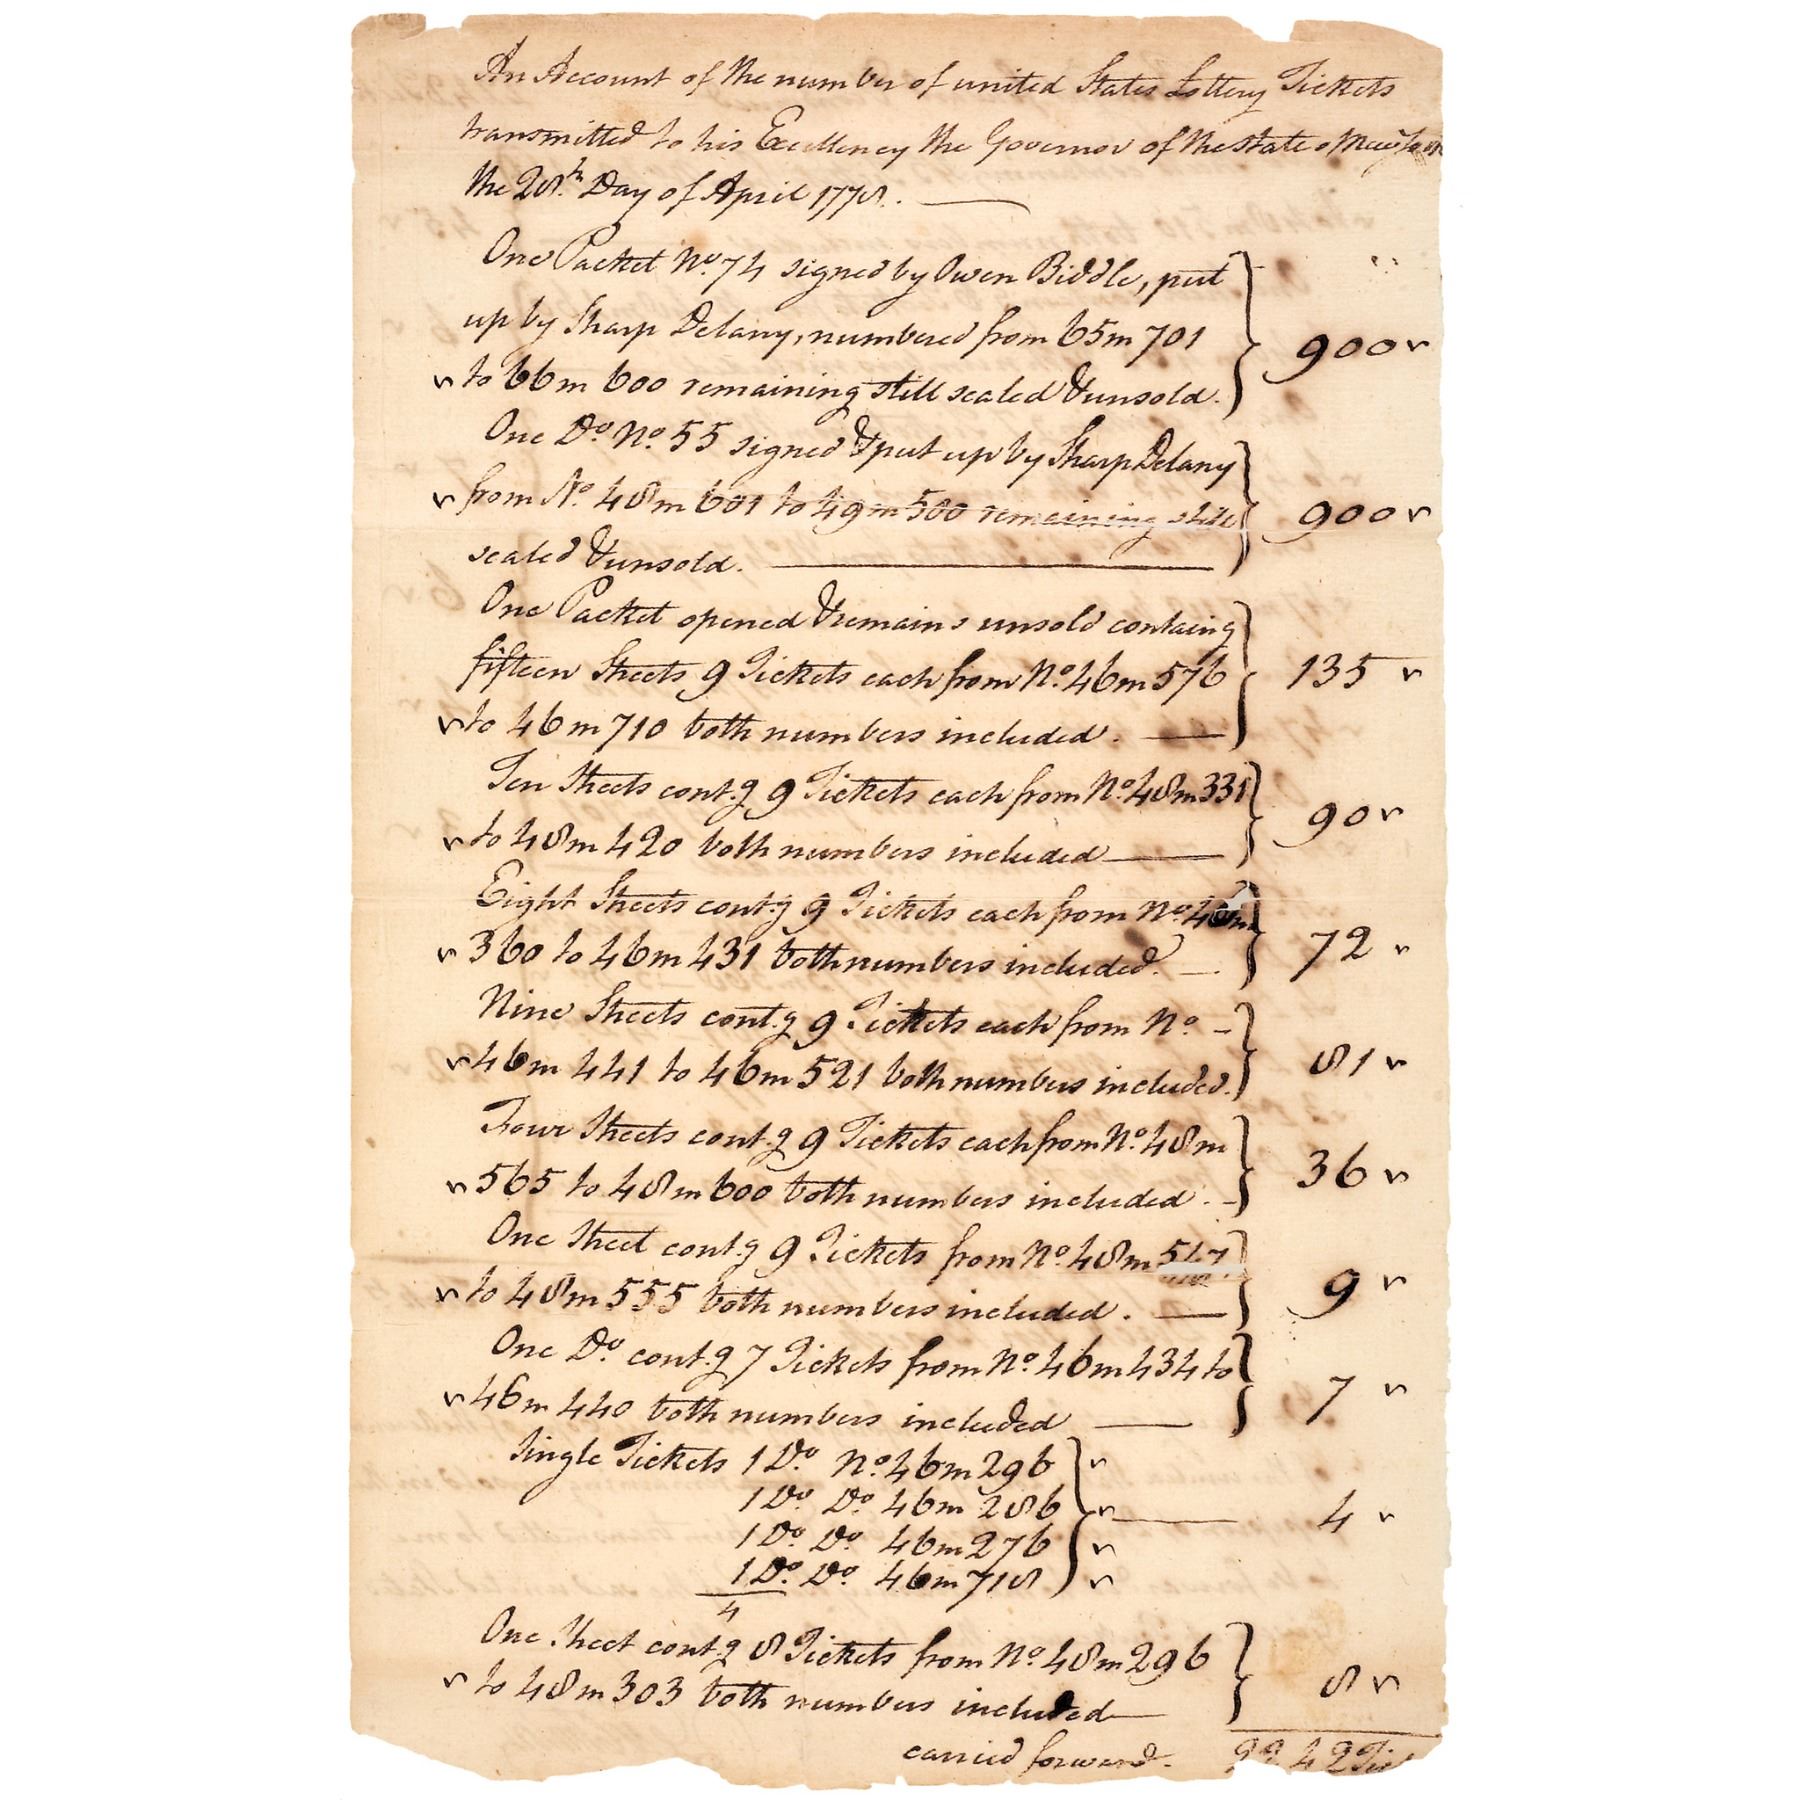 An Account of the number of united States Lottery Tickets
transmitted to his Excellency the Governor of the State o
the 28th Day of April 1778.
One Packet No. 74 signed by Owen Biddle, put
up by Sharp Delany, numbered from 65m 701
v to 66m 600 remaining still sealed & unsold. } 900 v
One Do. No. 55 signed & put up by Sharp Delany
v from No. 48m 601 to 49m 500 remaining still } 900 v
sealed & unsold.
One Packet opened & remains unsold containg
fifteen Sheets 9 Tickets each from No. 46m 576 } 135 v
v to 46m 710 both numbers included.
Ten Sheets cont.g 9 Tickets each from No. 48m 331
v to 48m 420 both numbers included } 90 v
Eight Sheets cont.g 9 Tickets each from No. 46m
v 360 to 46m 431 both numbers included. } 72 v
Nine Sheets cont.g 9 Tickets each from No. -
v 46m 441 to 46m 521 both numbers included. } 81 v
Four Sheets cont.g 9 Tickets each from No. 48m
v 565 to 48m 600 both numbers included. } 36 v
One Sheet cont.g 9 Tickets from No. 48m 547
v to 48m 555 both numbers included. } 9 v
One Do. cont.g 7 Tickets from No. 46m 434 to
v 46m 440 both numbers included } 7 v
Single Tickets 1 Do. No. 46m 296 } v
1 Do. Do. 46m 286 v 4 v
1 Do. Do. 46m 276 v
1 Do. Do. 46m 718 v
4
One Sheet cont.g 8 Tickets from No. 48m 296
v to 48m 303 both numbers included } 8 v
carried forward. 2242